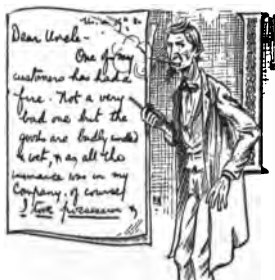 Dear Uncle -
One of my
customers has had a
fire. Not a very
bad one but the
goods are badly
& wet, & as all the
insurance was in my
Company, of course
I took possession &